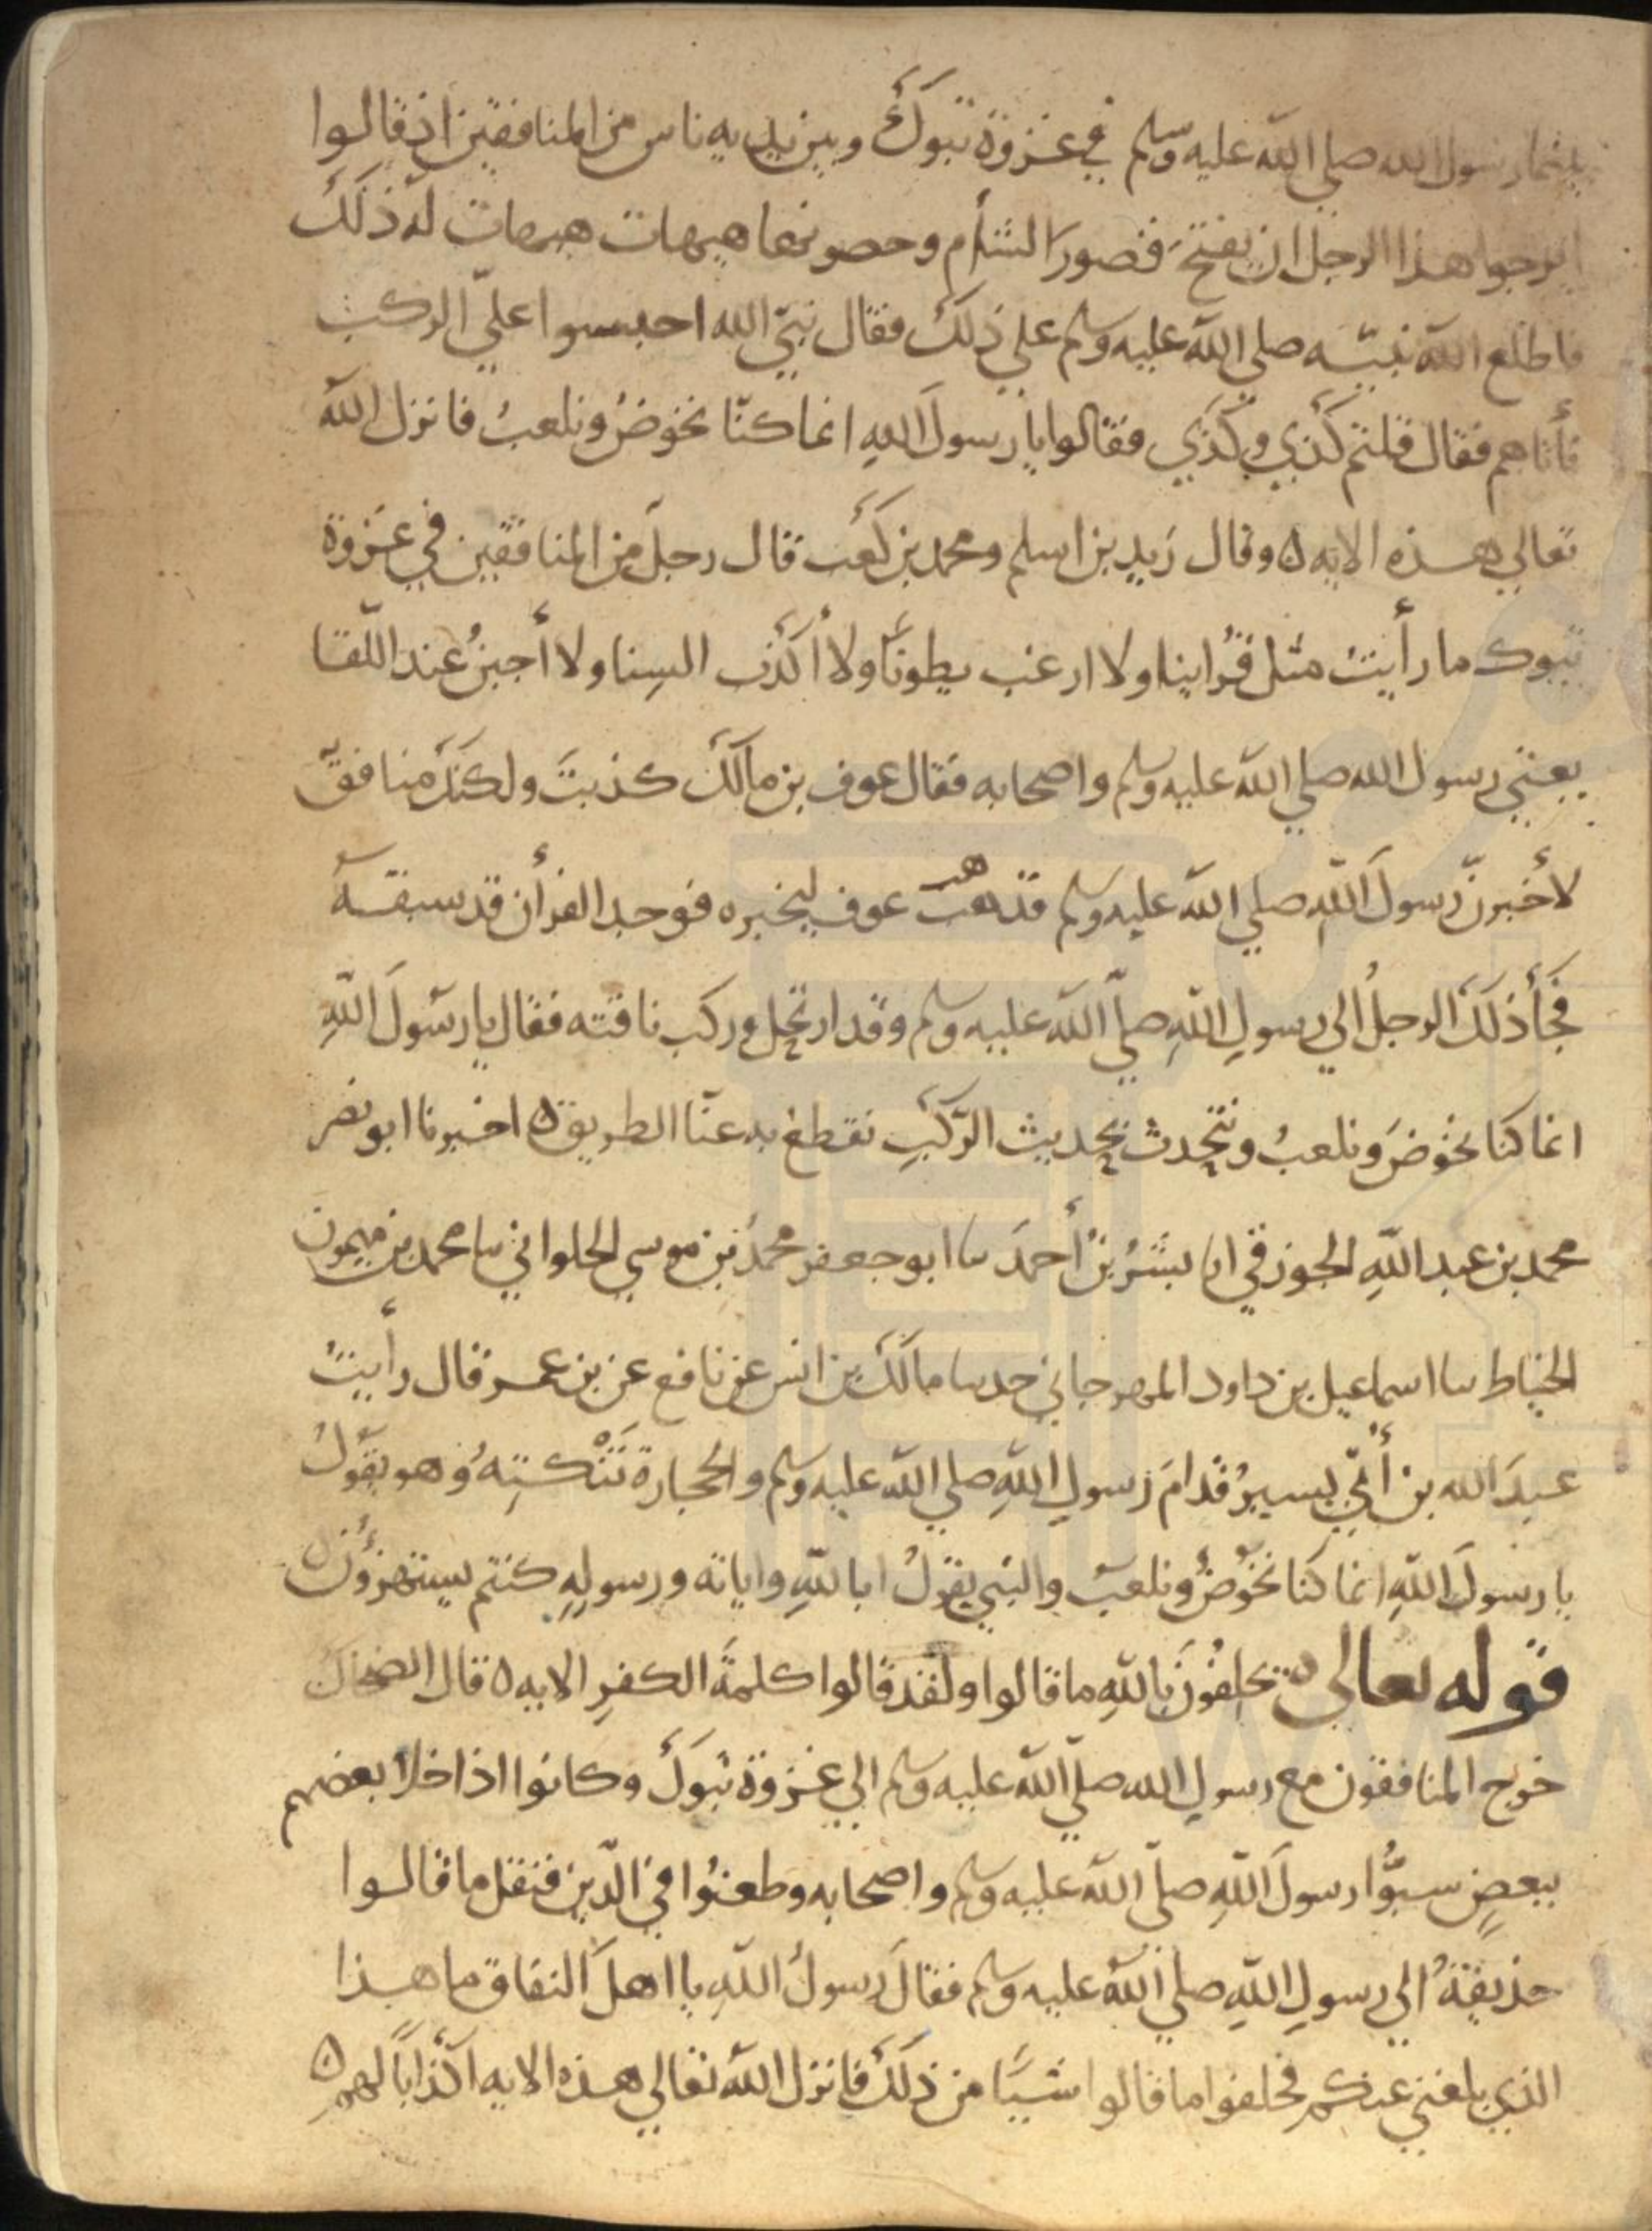 بينما رسول الله صلي الله عليه وسلم في غزوة تبوك وبين يديه ناس من المنافقين اذ قالوا
ايرجوا هذا الرجل ان يفتح قصور الشأم وحصونها هيهات هيهات له ذلك
فاطلع الله نبيّه صلي الله عليه وسلم علي ذلك فقال نبيّ الله احبسوا عليّ الركب
فأتاهم فقال قلتم كذي وكذي فقالوا يا رسول الله انما كنّا نخوض ونلعب فانزل الله
تعالي هذه الايه ه وقال زيد بن اسلم ومحمد بن كعب قال رجل من المنافقين في غزوة
تبوك ما رأيت مثل قُراينا ولا ارغب بطونًا ولا أكذب السنا ولا أجبن عند اللّقا
يعني رسول الله صلي الله عليه وسلم واصحابه فقال عوف بن مالك كذبت ولكنك منافق
لأخبرنّ رسول الله صلي الله عليه وسلم فذهب عوف ليخبره فوجد القرأن قد سبقه
فجأ ذلك الرجل الي رسول الله صلّي الله عليه وسلم وقد ارتحل وركب ناقته فقال يا رسول الله
انما كنا نخوض ونلعب ونتحدث بحديث الرّكب نقطع به عنّا الطريق ه اخبرنا ابو نصر
محمد بن عبد الله الجوزقي انا بشر بن أحمد ىىا ابو جعفر محمد بن موسي الحلواني ىىا محمد بن ميمون
الخياط ىىا اسماعيل بن داود المهرجاني حدىىا مالك بن انس عن نافع عن بن عمر قال رأيت
عبد الله بن أُبيّ يسير قدام رسول الله صلي الله عليه وسلم والحجارة تَنْكتِهُ وهو يقول
يا رسول الله انما كنا نخوض ونلعب والنبي يقول ابالله واياته ورسوله كنتم يستهزؤن ه
قوله تعالى يحلفون بالله ما قالوا ولقد قالوا كلمة الكفر الايه ه قال الضحاك
خرج المنافقون مع رسول الله صلّي الله عليه وسلم الي غزوة تبوك وكانوا اذا خلا بعضهم
ببعضٍ سبُّوا رسول الله صلّي الله عليه وسلم واصحابه وطعنُوا في الدّين فنقل ما قالوا
حذيفة الي رسول الله صلي الله عليه وسلم فقال رسول الله يا اهل النفاق ما هذا
الذي بلغني عنكم فحلفوا ما قالوا شيًا من ذلك فانزل الله تعالي هذه الايه اكذابًا لهم ه